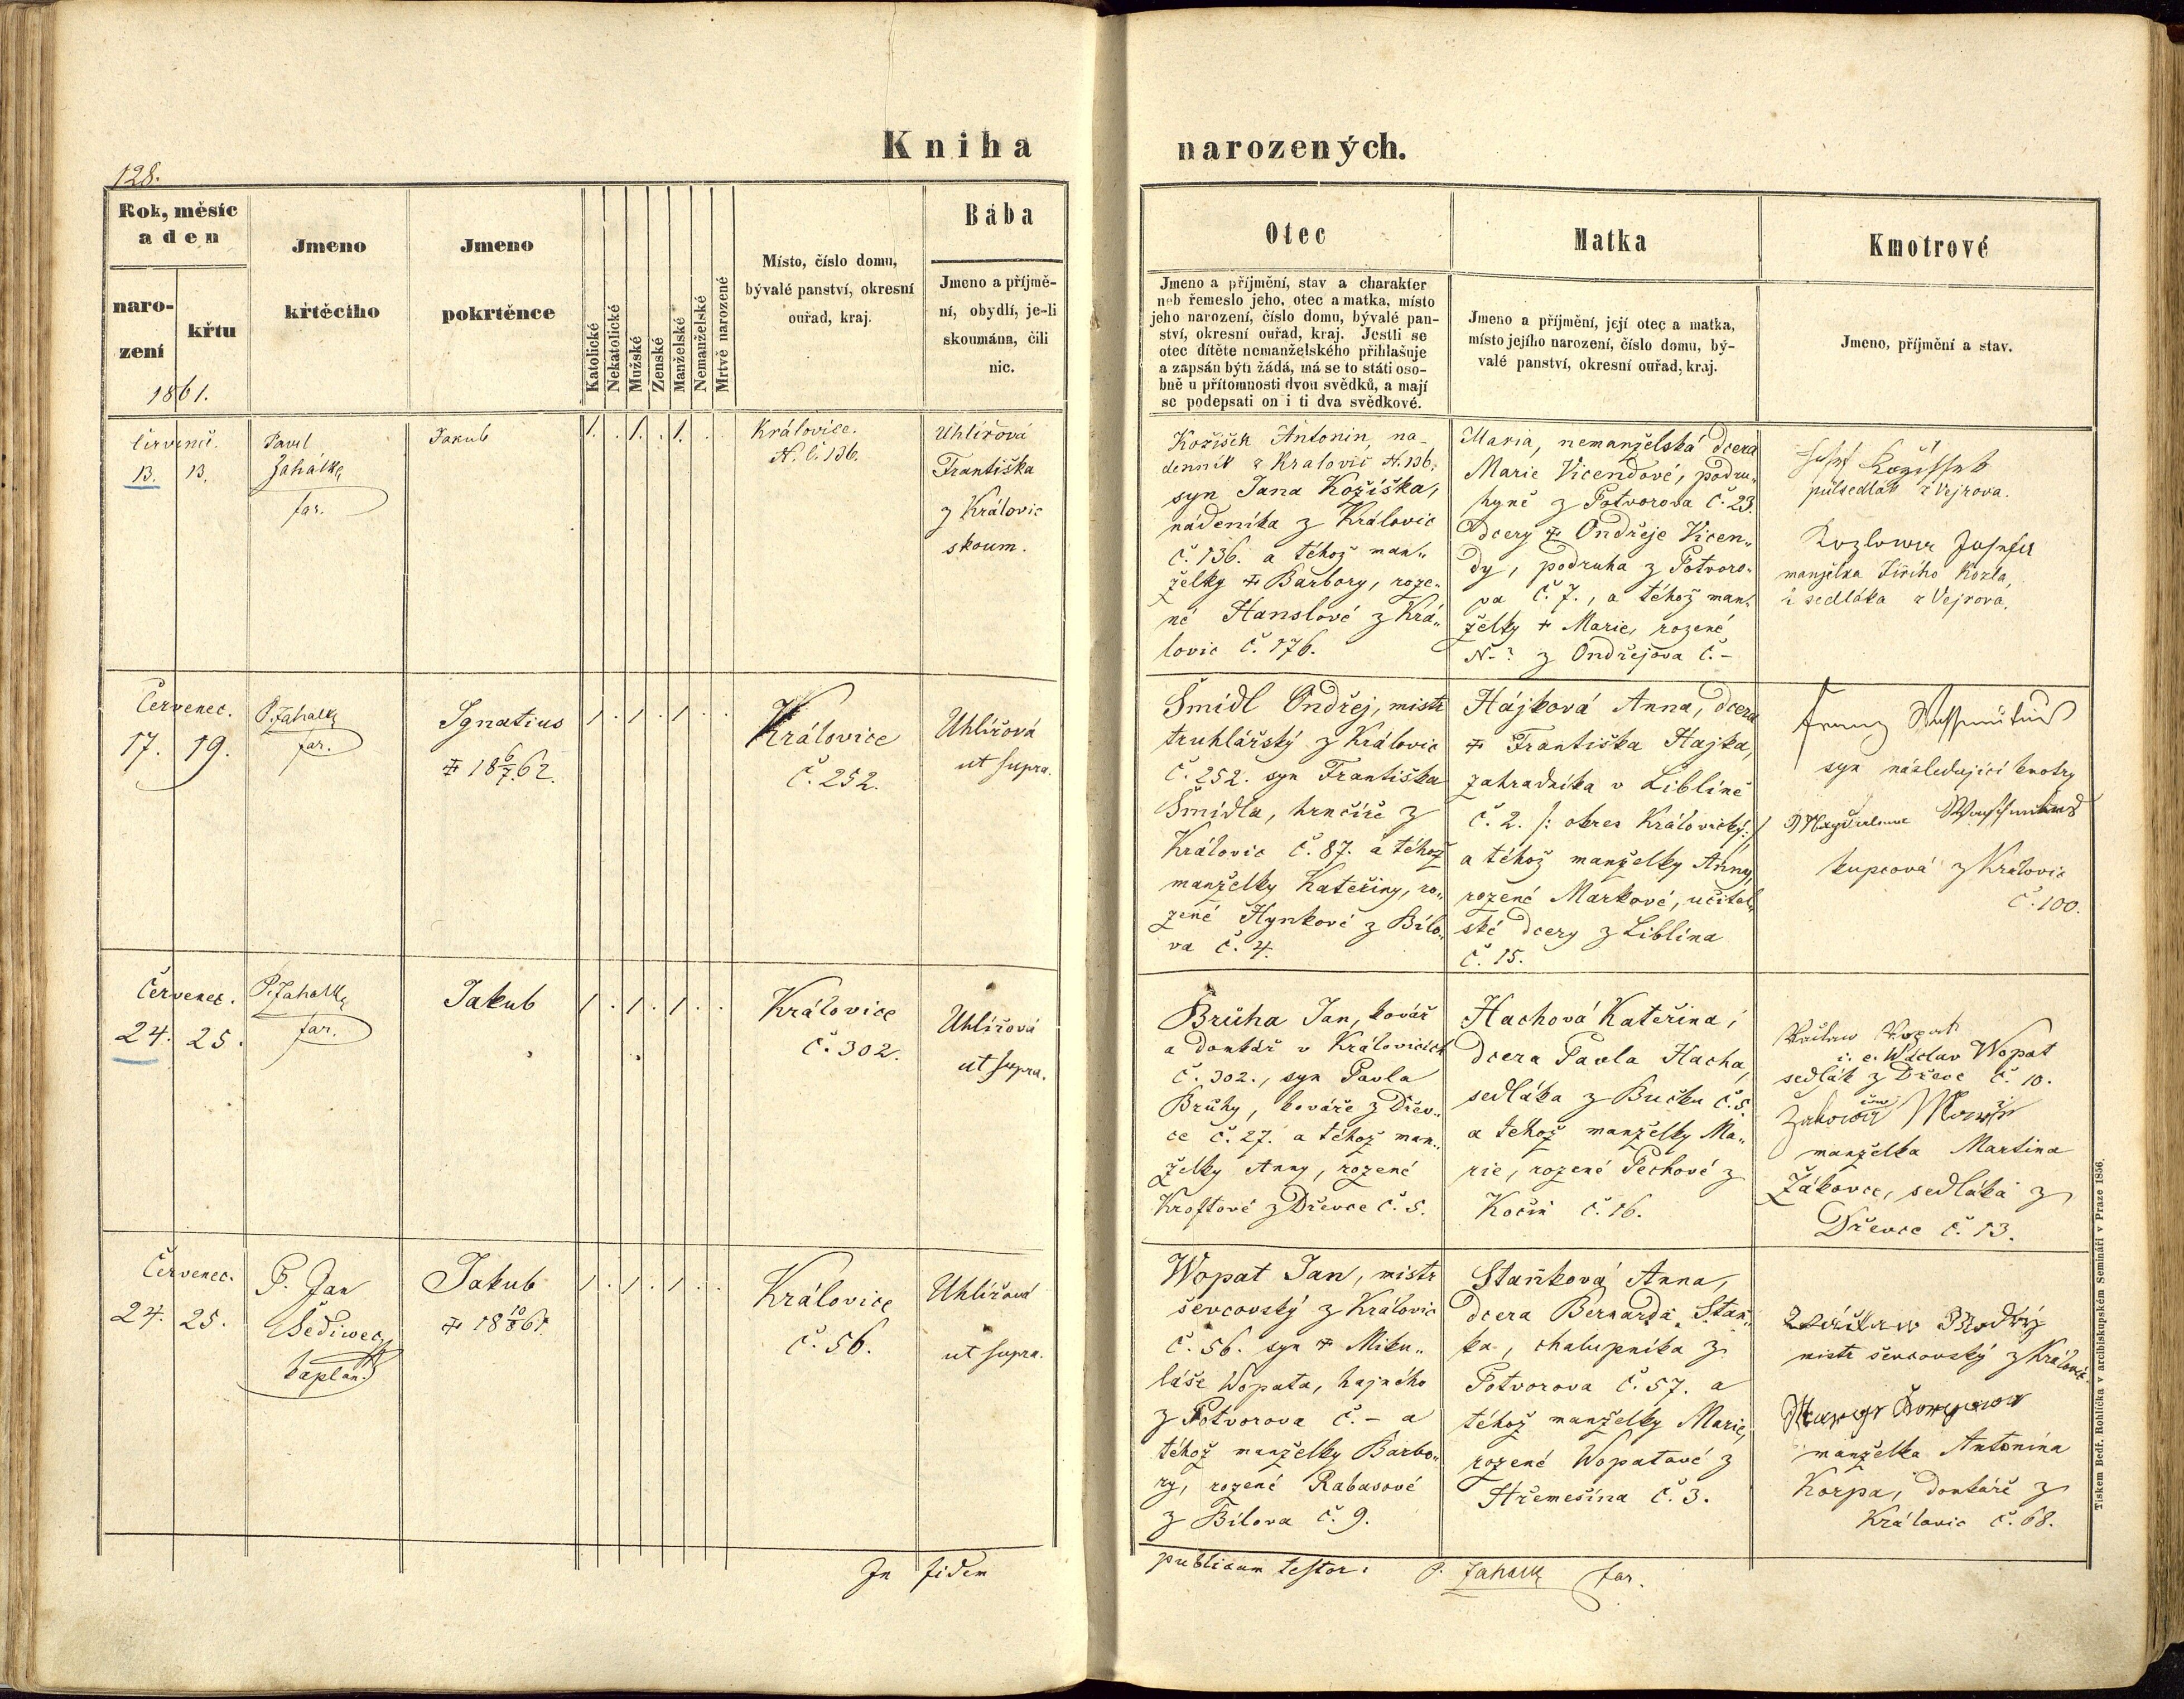 Kniha narozených.
128.
Rok, měsíc
a den
naro-
zení
křtu
1861.
Jmeno
křtěcího
Jmeno
pokrtěnce
Katolické
Nekatolické
Mužské
Ženské
Manželské
Nemanželské
Mrtvě narozené
Místo, číslo domu,
bývalé panství, okresní
ouřad, kraj.
Bába
Jmeno a příjmě-
ní, obydlí, je-li
skoumána, čili
nic.
Otec
Jmeno a příjmění, stav a charakter
neb řemeslo jeho, otec a matka, místo
jeho narození, číslo domu, bývalé pan-
ství, okresní ouřad, kraj. Jestli se
otec dítěte nemanželského přihlašuje
a zapsán býti žádá, má se to státi oso-
bně u přítomnosti dvou svědků, a mají
se podepsati on i ti dva svědkové.
Matka
Jmeno a příjmění, její otec a matka,
místo jejího narození, číslo domu, bý-
valé panství, okresní ouřad, kraj.
Kmotrové
Jmeno, příjmění a stav.
13. 13.
Pavel
Zahálka
far.
Jakub
1. . 1. . 1. .
Královice.
N. č. 136.
Uhlířová
Františka
z Královic
skoum.
Kožíšek Antonin, na-
denník z Kralovic N. 136.
syn Jana Kožíška,
nádeníka z Královic
č. 136. a téhož man„
želky ‡ Barbory, roze„
né Hanslové z Krá„
lovic č. 176.
Maria, nemanželská dcera
Marie Vicendové, podru„
hyně z Potvorova č. 23.
dcery ‡ Ondřeje Vicen„
dy, podruha z Potvoro„
va č. 7., a téhož man„
želky ‡ Marie, rozené
N-? z Ondřejova č. -
Josef Kožíšek
půlsedlák z Vejrova.
Kozlowa Josefa
manželka Jiřího Kozla,
sedláka z Vejrova.
Červenec.
17. 19.
P. Zahalka
far.
Ignatius
‡ 18 6/7. 62.
1 . 1 . 1 . .
Královice
č. 252.
Uhlířová
ut supra.
Šmidl Ondřej, mistr
truhlářský z Královic
č. 252. syn Františka
Šmidla, hrnčíře z
Královic č. 87. a téhož
manželky Kateřiny, ro„
zené Hynkové z Bílo„
va č. 4.
Hájková Anna, dcera
‡ Františka Hajka,
zahradníka v Liblíně
č. 2. /: okres Královický :/
a téhož manželky Anny,
rozené Markové, učitel„
ské dcery z Liblína
č. 15.
Franz
syn následující kmotry
kupcová z Královic
č. 100.
Červenec.
24. 25.
P. Zahalka
far.
Jakub
1 . 1 . 1 . .
Královice
č. 302.
Uhlířová
ut supra.
Brůha Jan, kovář
a domkář v Královicích
č. 302., syn Pavla
Brůhy, kováře z Dřev„
ce č. 27. a téhož man„
želky Anny, rozené
Kroftové z Dřevce č. 5.
Hachová Kateřina,
dcera Pavla Hacha,
sedláka z Bučku č. 5.
a téhož manželky Ma„
rie, rozené Pechové z
Kočín č. 16.
i. e. Wáclav Wopat
sedlák z Dřevc č. 10.
manželka Martina
Žákovce, sedláka z
Dřevce č. 13.
Červenec.
24. 25.
P. Jan
Šediwec
kaplan
Jakub
‡ 18 10/8 61.
1 . 1 . 1 . .
Královice
č. 56.
Uhlířová
ut supra.
Wopat Jan, mistr
ševcovský z Královic
č. 56. syn ‡ Miku„
láše Wopata, hajného
z Potvorova č. - a
téhož manželky Barbo„
ry, rozené Rabasové
z Bílova č. 9.
Staňková Anna,
dcera Bernarda Stan„
ka, chalupníka z
Potvorova č. 57. a
téhož manželky Marie,
rozené Wopatové z
Hřemešína č. 3.
mistr ševcovský z Královic.
manželka Antonína
Korpa, domkáře z
Královic č. 68.
In fidem publicam testor: P. Zahalka far.
Tiskem Bedř. Rohlíčka v arcibiskupském Semináři v Praze 1856.